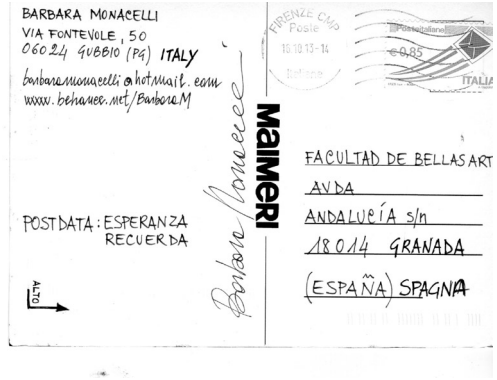 BARBARA MONACELLI
VIA FONTEVOLE, 50
06024 GUBBIO (PG) ITALY
barbaramonacelli@hotmail.com
www.behance.net/BarbaraM
POSTDATA: ESPERANZA
RECUERDA
ALTO
Barbara Monacelli
MAIMERI
FIRENZE CMP
Poste
10.10.13-14
Italiane
Posteitaliane
€0,85
ITALIA
FACULTAD DE BELLAS ART
AVDA
ANDALUCÍA s/n
18014 GRANADA
(ESPAÑA) SPAGNA